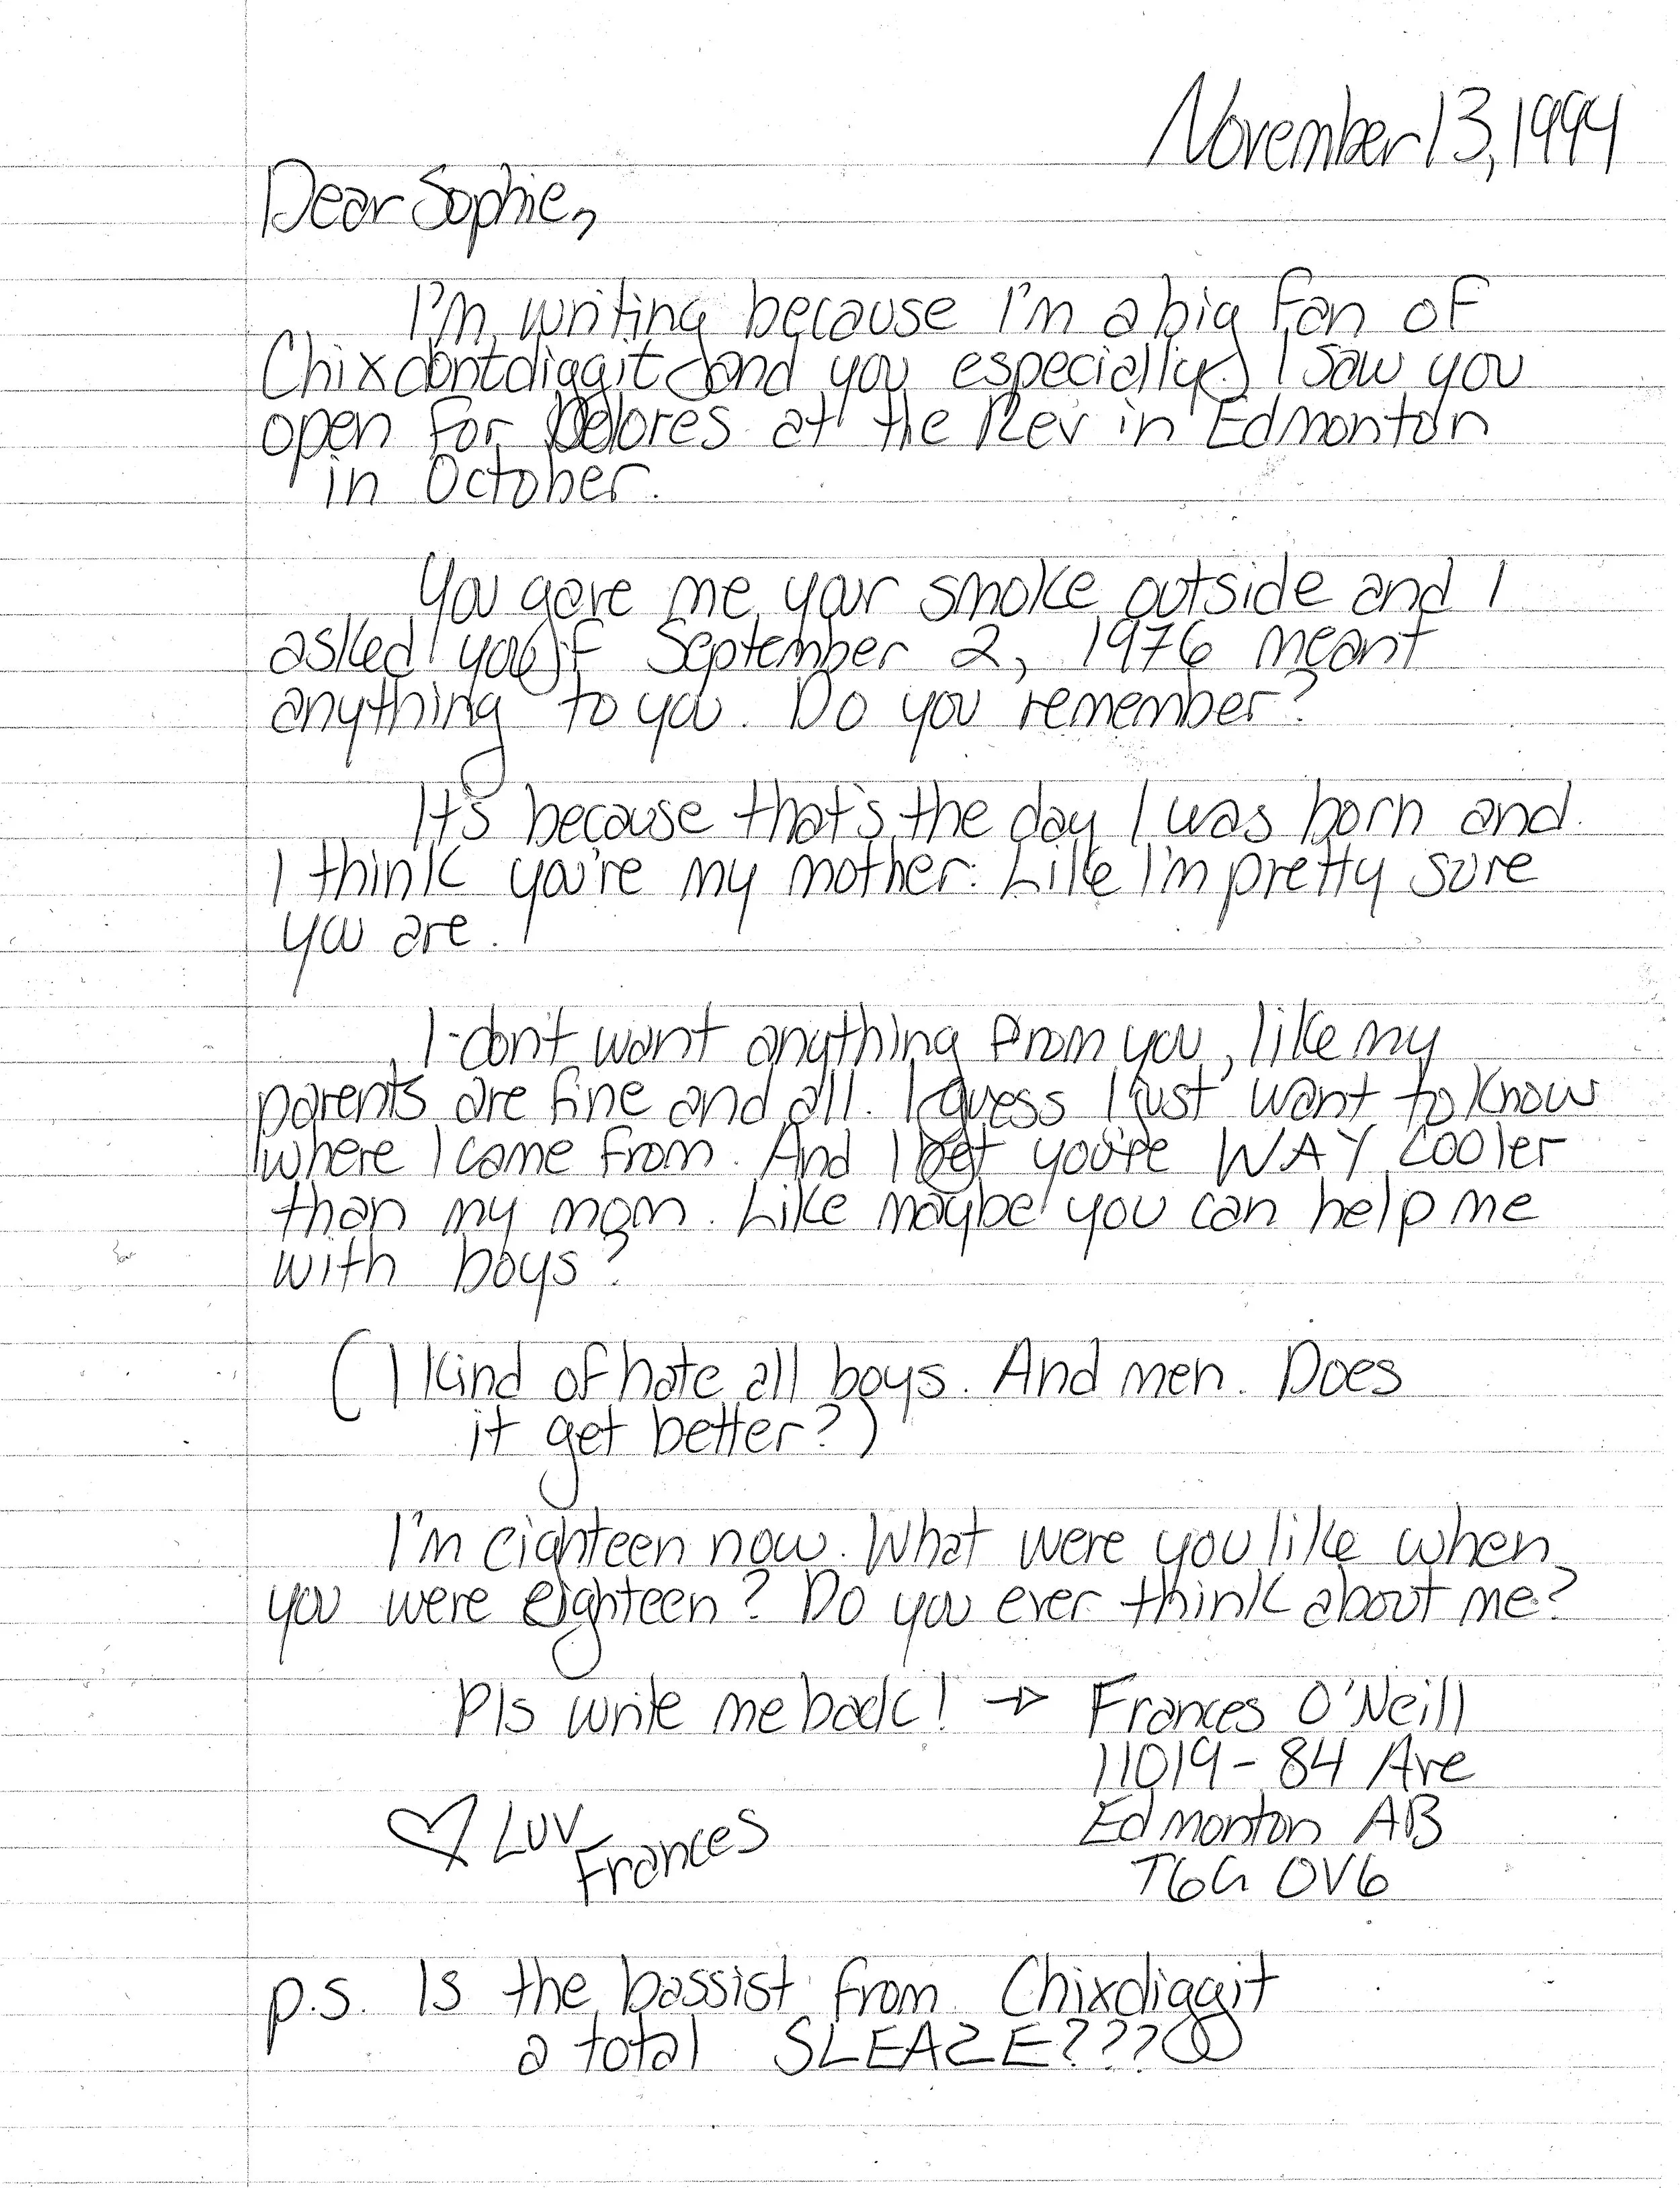 November 13, 1994
Dear Sophie,
I'm writing because I'm a big fan of
Chixdontdiggit and you especially. I saw you
open for Dolores at the Rev in Edmonton
in October.
You gave me your smoke outside and I
asked you if September 2, 1976 meant
anything to you. Do you remember?
It's because that's the day I was born and
I think you're my mother. Like I'm pretty sure
you are.
I don't want anything from you, like my
parents are fine and all. I guess I just want to know
where I came from. And I bet you're WAY cooler
than my mom. Like maybe you can help me
with boys?
(I kind of hate all boys. And men. Does
it get better?)
I'm eighteen now. What were you like when
you were eighteen? Do you ever think about me?
Pls write me back! → Frances O'Neill
11019-84 Ave
Edmonton AB
T6G 0V6
♡ Luv
Frances
p.s. Is the bassist from Chixdiggit
a total SLEAZE???